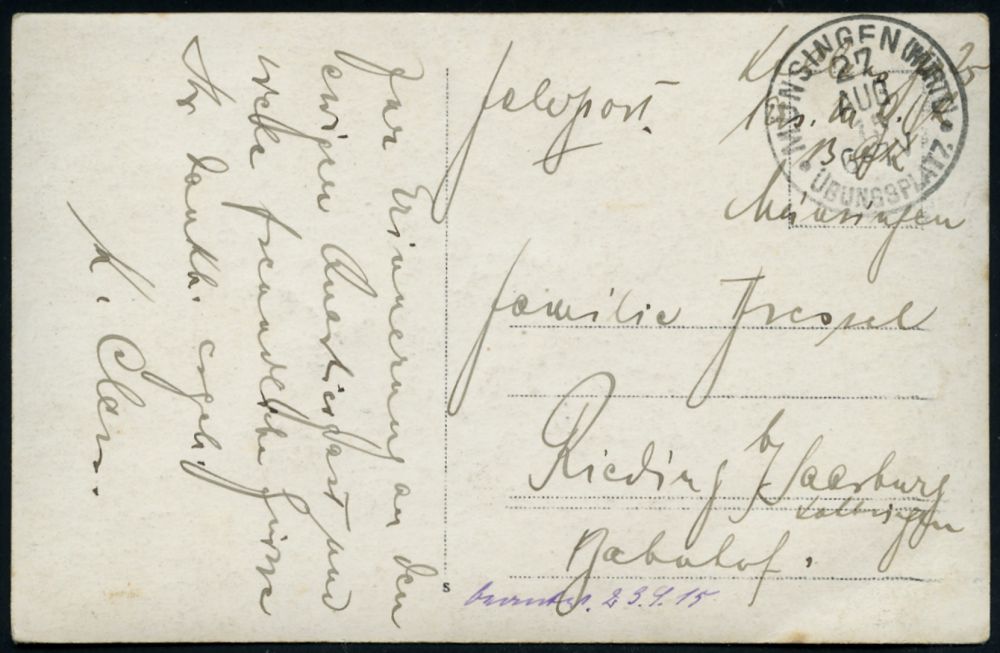 Zur Erinnerung an den
ewigen Quartiergast und
viele freundliche Grüsse
Ihr dankb. ergeb.
K.
Feldpost.
MÜNSINGEN (WÜRTT.)
27
AUG
15
ÜBUNGSPLATZ.
Münsingen
Familie Fressel
Rieding b/ Saarburg
Lothringen
Bahnhof.
S
beantw. 23.9.15